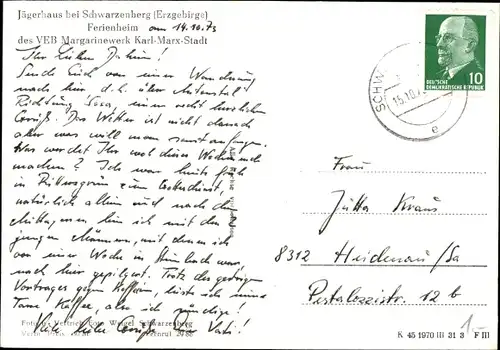 Jägerhaus bei Schwarzenberg (Erzgebirge)
Ferienheim am 14.10.73
des VEB Margarinewerk Karl-Marx-Stadt
Ihr Lieben Daheim!
Sende Euch von einer Wanderung
nach hier d.h. über
Richtung einen recht herzlichen
Gruß. Das Wetter ist nicht danach
aber was will man sonst anfangen.
Was werdet Ihr wohl dieses Wochenende
machen? Ich war heute früh
in Rittersgrün zum Gottesdienst,
natürlich allein und nach dem
Mittagessen bin ich mit den 2
jungen Männern, mit denen ich
vor einer Woche in war,
nach hier gepilgert. Trotz des gestrigen
Vortrages gegen Koffein, leiste ich mir eine
Tasse Kaffee, also ich sündige!
Viele liebe Grüße Euer Vati!
Foto u. Vertrieb Foto Weigel Schwarzenberg
SCHW
15.10.7
e
10
DEUTSCHE
DEMOKRATISCHE REPUBLIK
Frau
Jutta Kraus
8312 Heidenau/Sa
Pestalozzistr. 12 b
1.-
K 45 1970 III 31 3 F III